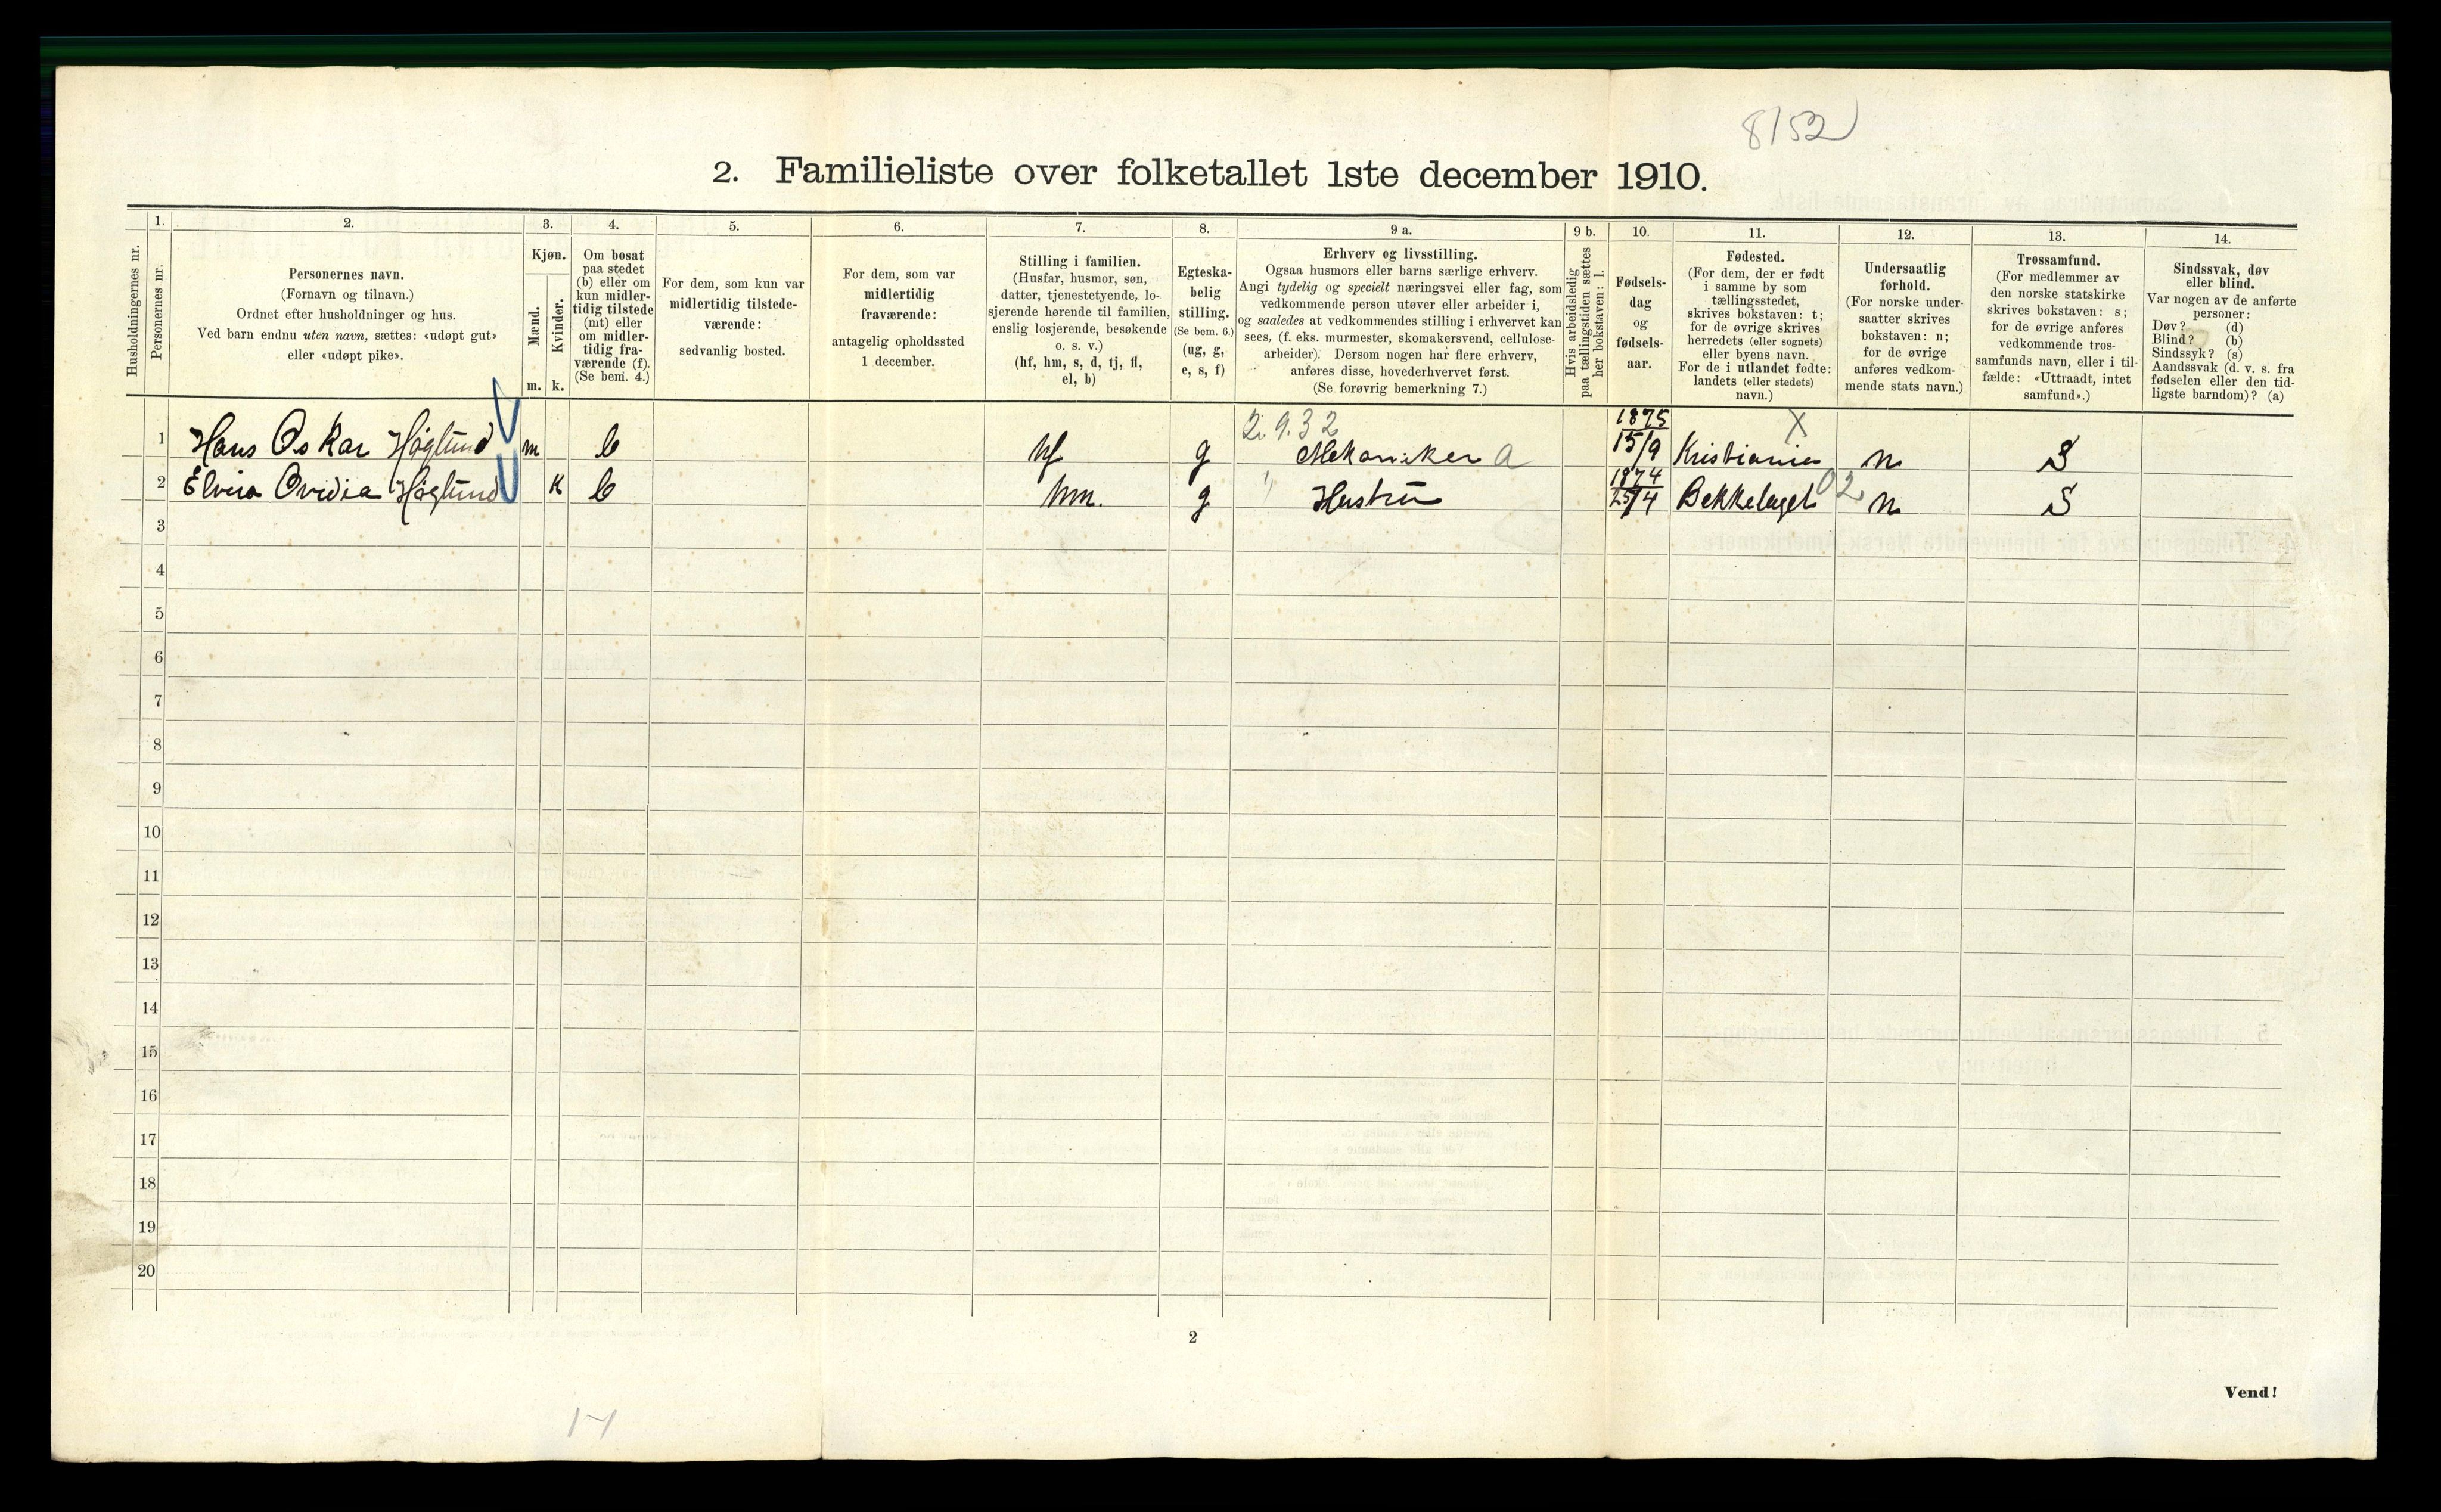 8152
2. Familieliste over folketallet 1ste december 1910.
Husholdningernes nr.
1.
Personernes nr.
2.
Personernes navn.
(Fornavn og tilnavn.)
Ordnet efter husholdninger og hus.
Ved barn endnu uten navn, sættes: «udøpt gut»
eller «udøpt pike».
3.
Kjøn.
Mænd.
m.
Kvinder.
k.
4.
Om bosat
paa stedet
(b) eller om
kun midler-
tidig tilstede
(mt) eller
om midler-
tidig fra-
værende (f).
(Se bem. 4.)
5.
For dem, som kun var
midlertidig tilstede-
værende:
sedvanlig bosted.
6.
For dem, som var
midlertidig
fraværende:
antagelig opholdssted
1 december.
7.
Stilling i familien.
(Husfar, husmor, søn,
datter, tjenestetyende, lo-
sjerende hørende til familien,
enslig losjerende, besøkende
o. s. v.)
(hf, hm, s, d, tj, fl,
el, b)
8.
Egteska-
belig
stilling.
(Se bem. 6.)
(ug, g,
e, s, f)
9 a.
Erhverv og livsstilling.
Ogsaa husmors eller barns særlige erhverv.
Angi tydelig og specielt næringsvei eller fag, som
vedkommende person utøver eller arbeider i,
og saaledes at vedkommendes stilling i erhvervet kan
sees, (f. eks. murmester, skomakersvend, cellulose-
arbeider). Dersom nogen har flere erhverv,
anføres disse, hovederhvervet først.
(Se forøvrig bemerkning 7.)
9 b.
Hvis arbeidsledig
paa tællingstiden sættes
her bokstaven: l.
10.
Fødsels-
dag
og
fødsels-
aar.
11.
Fødested.
(For dem, der er født
i samme by som
tællingsstedet,
skrives bokstaven: t;
for de øvrige skrives
herredets (eller sognets)
eller byens navn.
For de i utlandet fødte:
landets (eller stedets)
navn.)
12.
Undersaatlig
forhold.
(For norske under-
saatter skrives
bokstaven: n;
for de øvrige
anføres vedkom-
mende stats navn.)
13.
Trossamfund.
(For medlemmer av
den norske statskirke
skrives bokstaven: s;
for de øvrige anføres
vedkommende tros-
samfunds navn, eller i til-
fælde: «Uttraadt, intet
samfund».)
14.
Sindssvak, døv
eller blind.
Var nogen av de anførte
personer:
Døv? (d)
Blind? (b)
Sindssyk? (s)
Aandssvak (d. v. s. fra
fødselen eller den tid-
ligste barndom)? (a)
1 Hans Oskar Høglund m b hf g 2.9.32 Mekaniker a 1875 15/9 Kristiania X n S
2 Elvira Ovidia Høglund k b hm. g " Hustru 1874 25/4 Bekkelaget 02 n S
3
4
5
6
7
8
9
10
11
12
13
14
15
16
17
18
19
20
2
Vend!